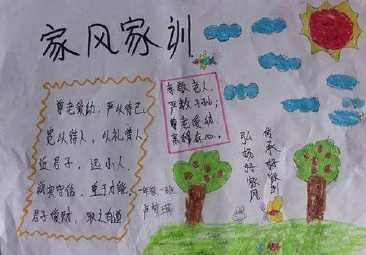 家风家训
尊老爱幼，严以律己，
宽以待人，以礼待人
近君子，远小人，
诚实守信，重于小能，
君子爱财，取之有道
孝敬老人，
严教子孙；
尊老爱幼
一年级一班
传承好家训
弘扬好家风